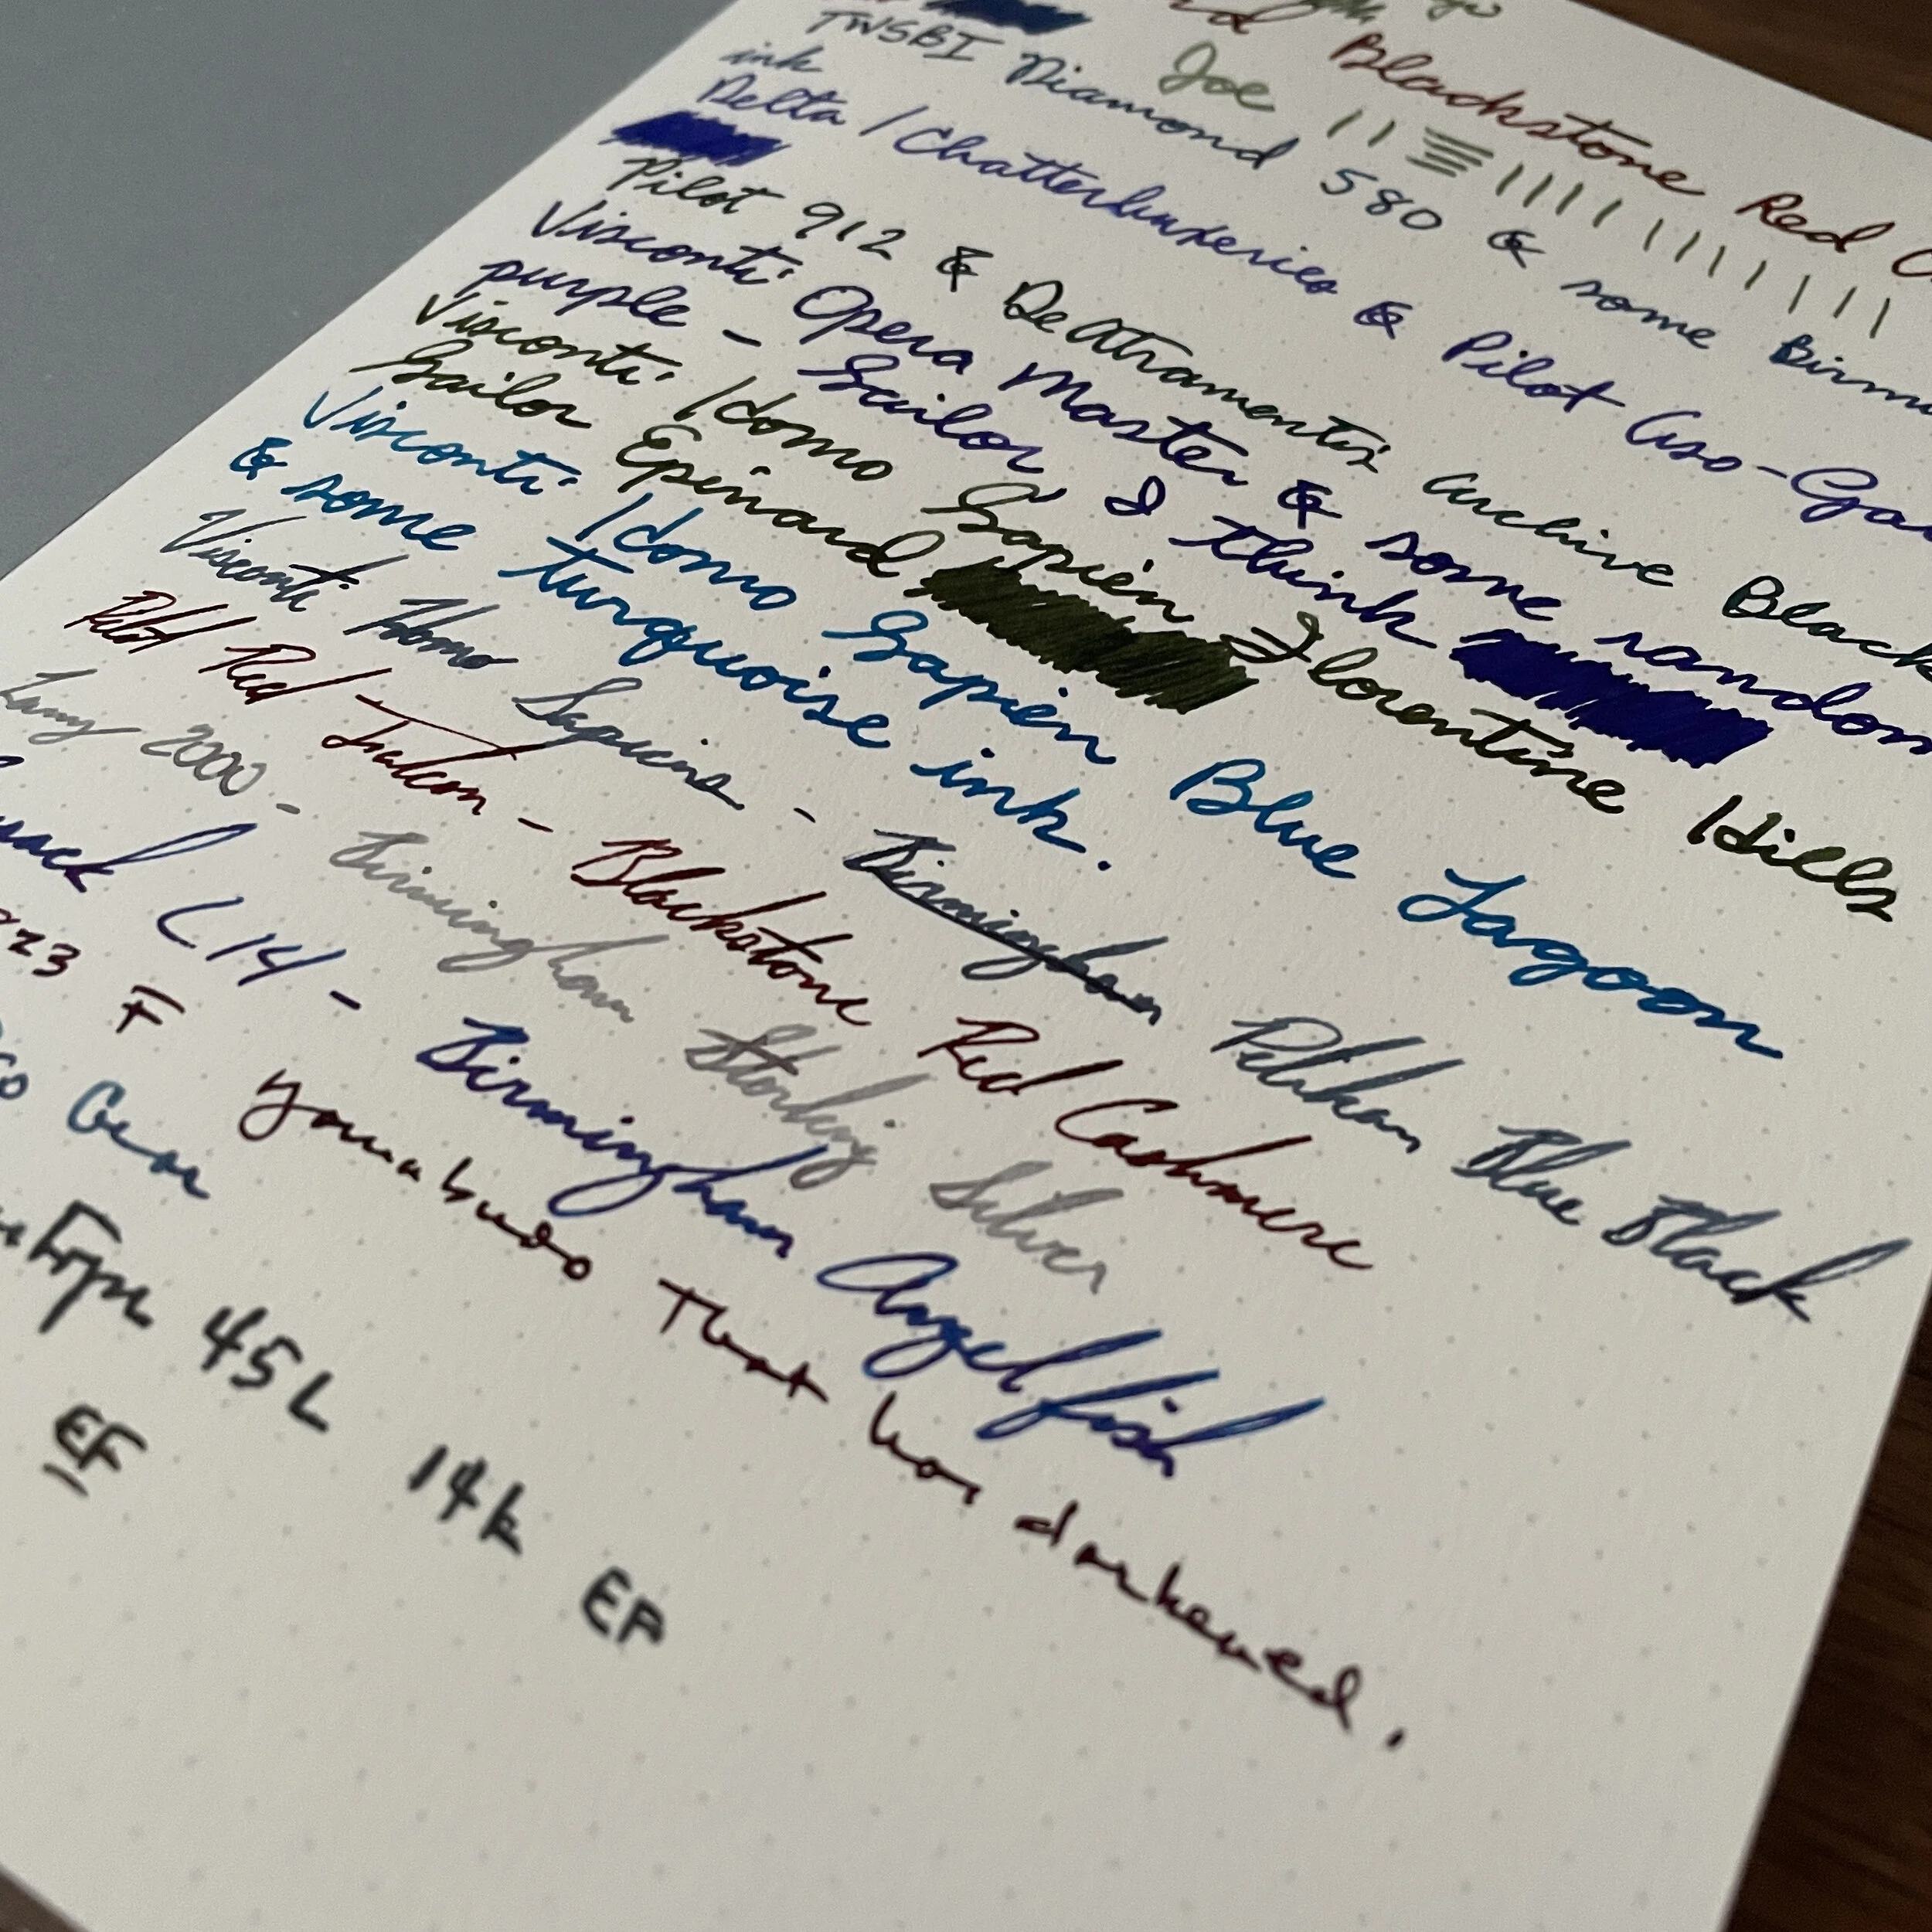 Blackstone Red
Joe
TWSBI Diamond 580 & some
ink
Delta / Chatterluxeries & Pilot Aso-
Pilot 912 & De Atramentis Archive Black
Visconti Opera Master & some random
purple - Sailor I think
Visconti Homo Sapien Florentine Hills
Sailor Epinard
Visconti Homo Sapien Blue Lagoon
& some turquoise ink.
Visconti Homo Sapiens - Birmingham Pelikan Blue Black
Pilot Red Falcon - Blackstone Red Cashmere
Lamy 2000 - Birmingham Sterling Silver
L14 - Birmingham Angelfish
F Yamabudo That has darkened.
Gear
45L 14k EF
EF